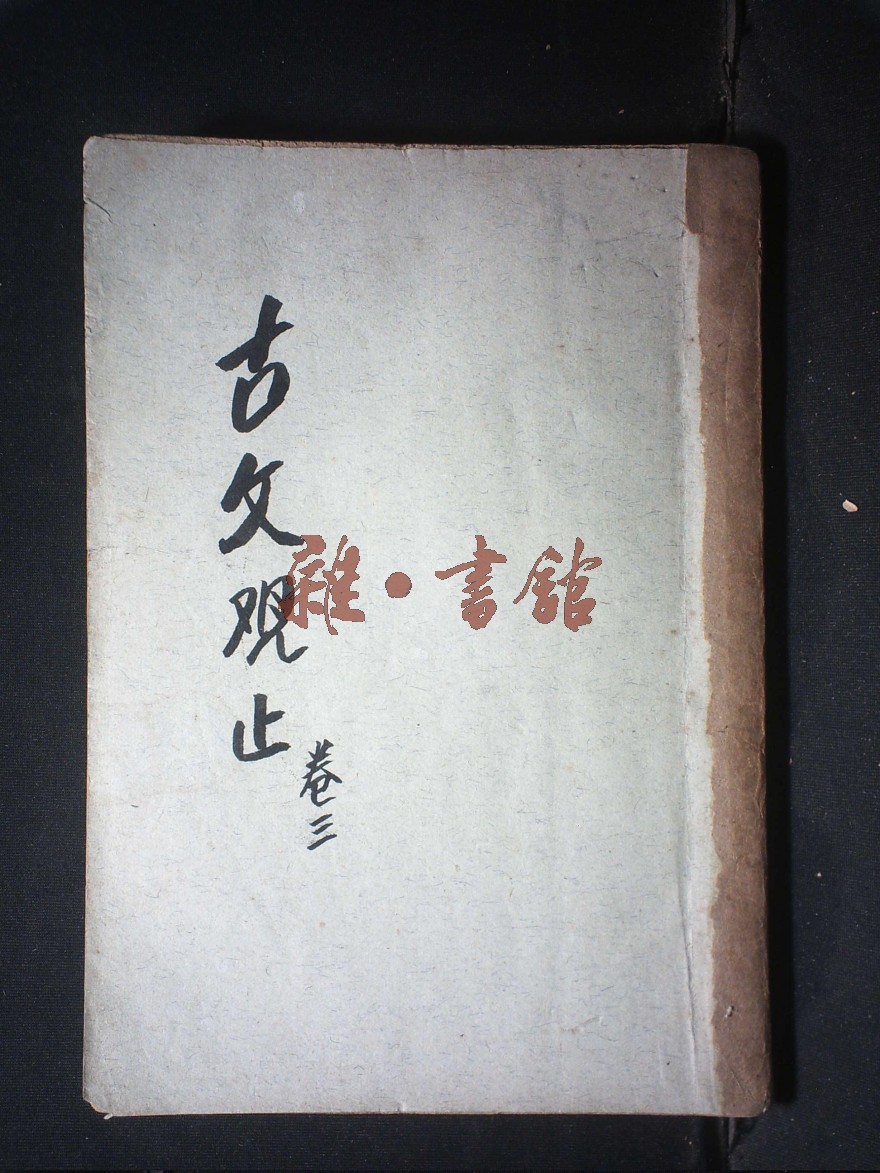 古文观止
卷三
雜·書舘